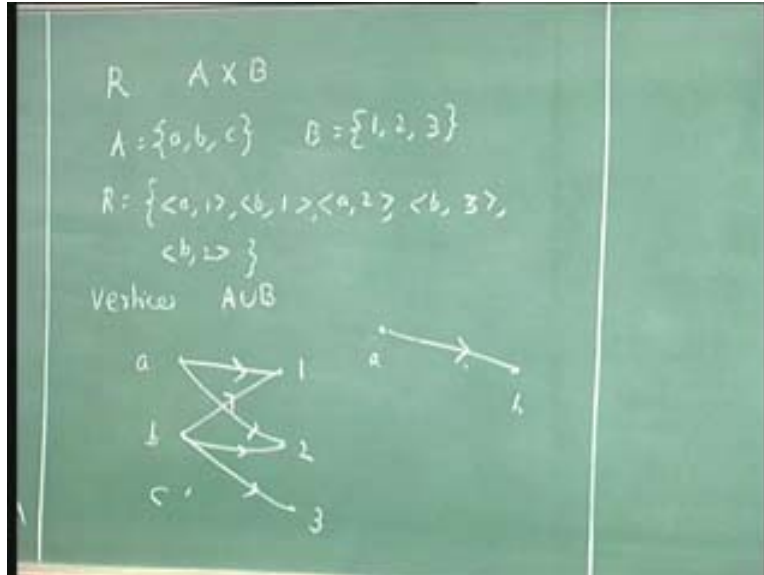 R A X B
A = {a, b, c} B = {1, 2, 3}
R = {<a, 1>, <b, 1>, <a, 2>, <b, 3>,
<b, 2> }
Vertices A∪B
a 1
a b
b 2
c 3